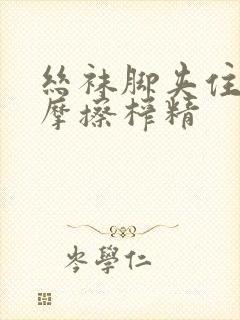 丝袜脚夹住
摩擦榨精
岑學仁